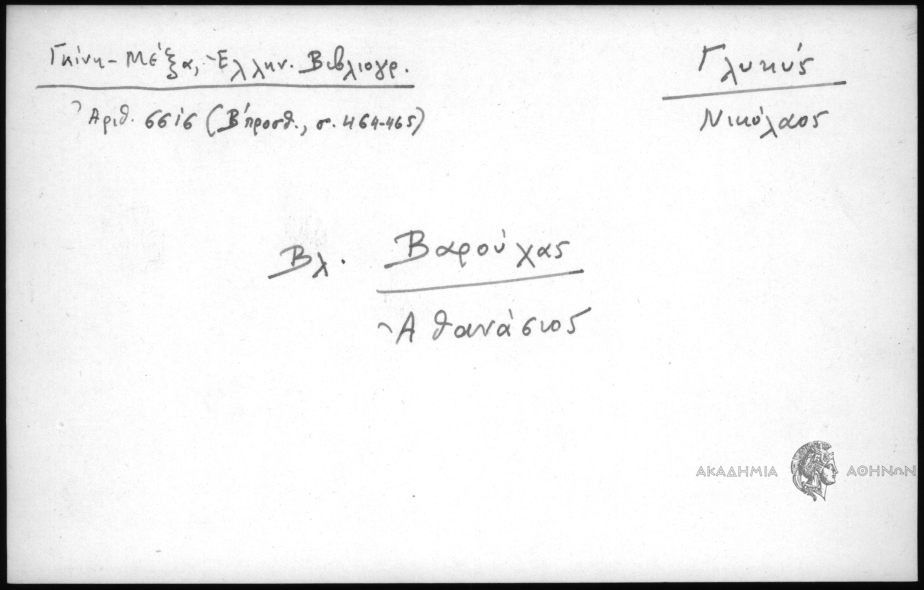 Γκίνη-Μέξα, Ἑλλην. Βιβλιογρ.
Ἀριθ. 6616 (Β' προσθ., σ. 464-465)
Γλυκύς
Νικόλαος
Βλ. Βαρούχας
Ἀθανάσιος
ΑΚΑΔΗΜΙΑ ΑΘΗΝΩΝ